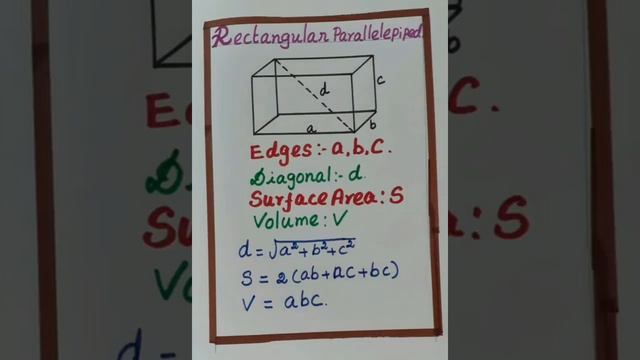 Rectangular Parallelepiped
d
c
a
b
Edges:- a,b,c.
Diagonal:- d.
Surface Area: S
Volume: V
d = √a²+b²+c²
S = 2(ab+ac+bc)
V = abc.